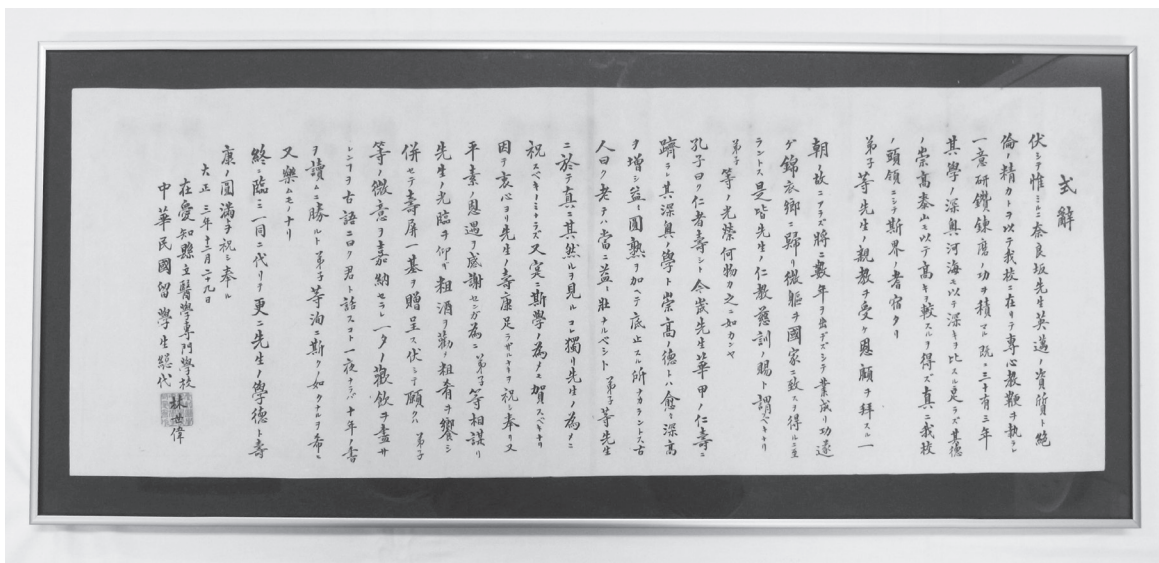 式辭
伏シテ惟ミルニ奈良坂先生英邁ノ資質ト絶
倫ノ精力トヲ以テ我校ニ在リテ專心教鞭ヲ執ラレ
一意研鑽錬磨ノ功ヲ積マル既ニ三十有三年
其學ノ深奥河海モ以テ深キヲ比スルニ足ラズ其德
ノ崇高泰山モ以テ高キヲ較スルヲ得ズ真ニ我校
ノ頭領ニシテ斯界ノ耆宿タリ
弟子等先生ノ親教ヲ受ケ恩顧ヲ拜スル一
朝ノ故ニアラズ將ニ數年ヲ出デズシテ業成リ功遂
ゲ錦衣郷ニ歸リ微軀ヲ國家ニ致スヲ得ルニ至
ラントス是皆先生ノ仁教慈訓ノ賜ト謂ベキナリ
弟子等ノ光榮何物カ之ニ如カンヤ
孔子曰ク仁者壽シト今茲先生華甲ノ仁壽ニ
躋ラレ其深奥ノ學ト崇高ノ德トハ愈々深高
ヲ增シ益々圓熟ヲ加ヘテ底止スル所ナカラントス古
人曰ク老テハ當ニ益々壯ナルベシト弟子等先生
ニ於テ真ニ其然ルヲ見ル コレ獨リ先生ノ為メニ
祝スベキノミナラズ又実ニ斯學ノ為メニ賀スベキナリ
因テ衷心ヨリ先生ノ壽康足ラザルナキヲ祝シ奉リ又
平素ノ恩遇ヲ感謝センガ為ニ弟子等相謀リ
先生ノ光臨ヲ仰ギ粗酒ヲ勸メ粗肴ヲ饗シ
併セテ壽屏一基ヲ贈呈ス伏シテ願クハ弟子
等ノ微意ヲ嘉納セラレ一夕ノ歡飲ヲ盡サ
レンコヲ古語ニ曰ク君ト話スコト一夜ナラバ十年ノ書
ヲ讀ムニ勝ルト弟子等洵ニ斯クノ如クナルヲ希ヒ
又樂ムモノナリ
終ニ臨ミ一同ニ代リテ更ニ先生ノ學德ト壽
康ノ圓滿ヲ祝シ奉ル
大正三年十二月二十九日
在愛知縣立醫學專門學校
中華民國留學生總代 林世偉